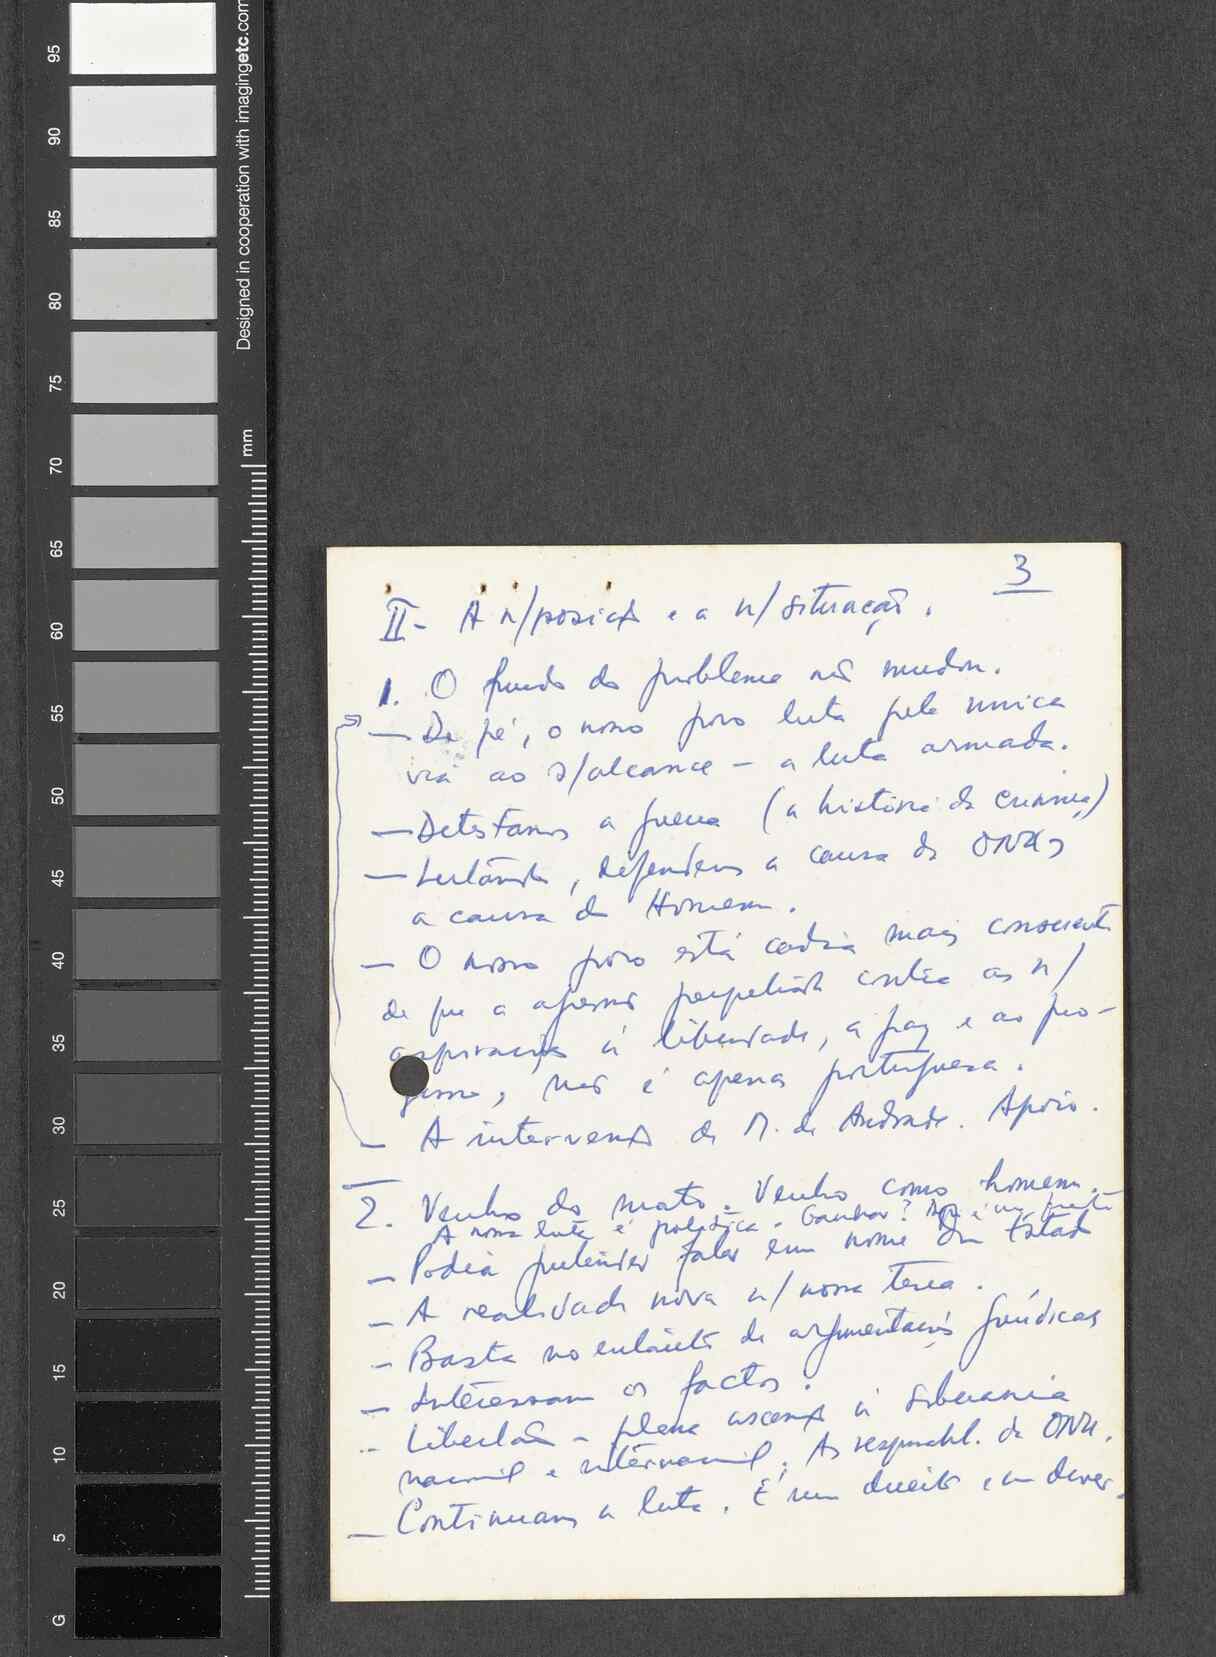 95
90
85
80
75
70
65
60
55
50
45
40
35
30
25
20
15
10
5
G
Designed in cooperation with imagingetc.com
mm
3
II - A n/posição e a n/situação.
1. O fundo do problema não mudou.
— De pé, o nosso povo luta pela única
via ao s/alcance – a luta armada.
— Detestamos a guerra (a história da criança)
— Lutando, defendemos a causa da ONU,
a causa do Homem.
— O nosso povo está cada mais consciente
de que a agressão perpetrada contra as n/
aspirações à liberdade, à paz e ao pro-
gresso, não é apenas portuguesa.
— A intervenção de M. de Andrade. Apoio.
2. Venho do mato. Venho como homem.
A nossa luta é política. Ganhar?
— Podia pretender falar em nome dum Estado
— A realidade nova n/ nossa terra.
— Basta no entanto de argumentações jurídicas
— Interessam os factos.
— Libertação – plena ascensão à soberania
nacional e internacional. As responsabil. da ONU.
— Continuamos a luta. É um direito e um dever.